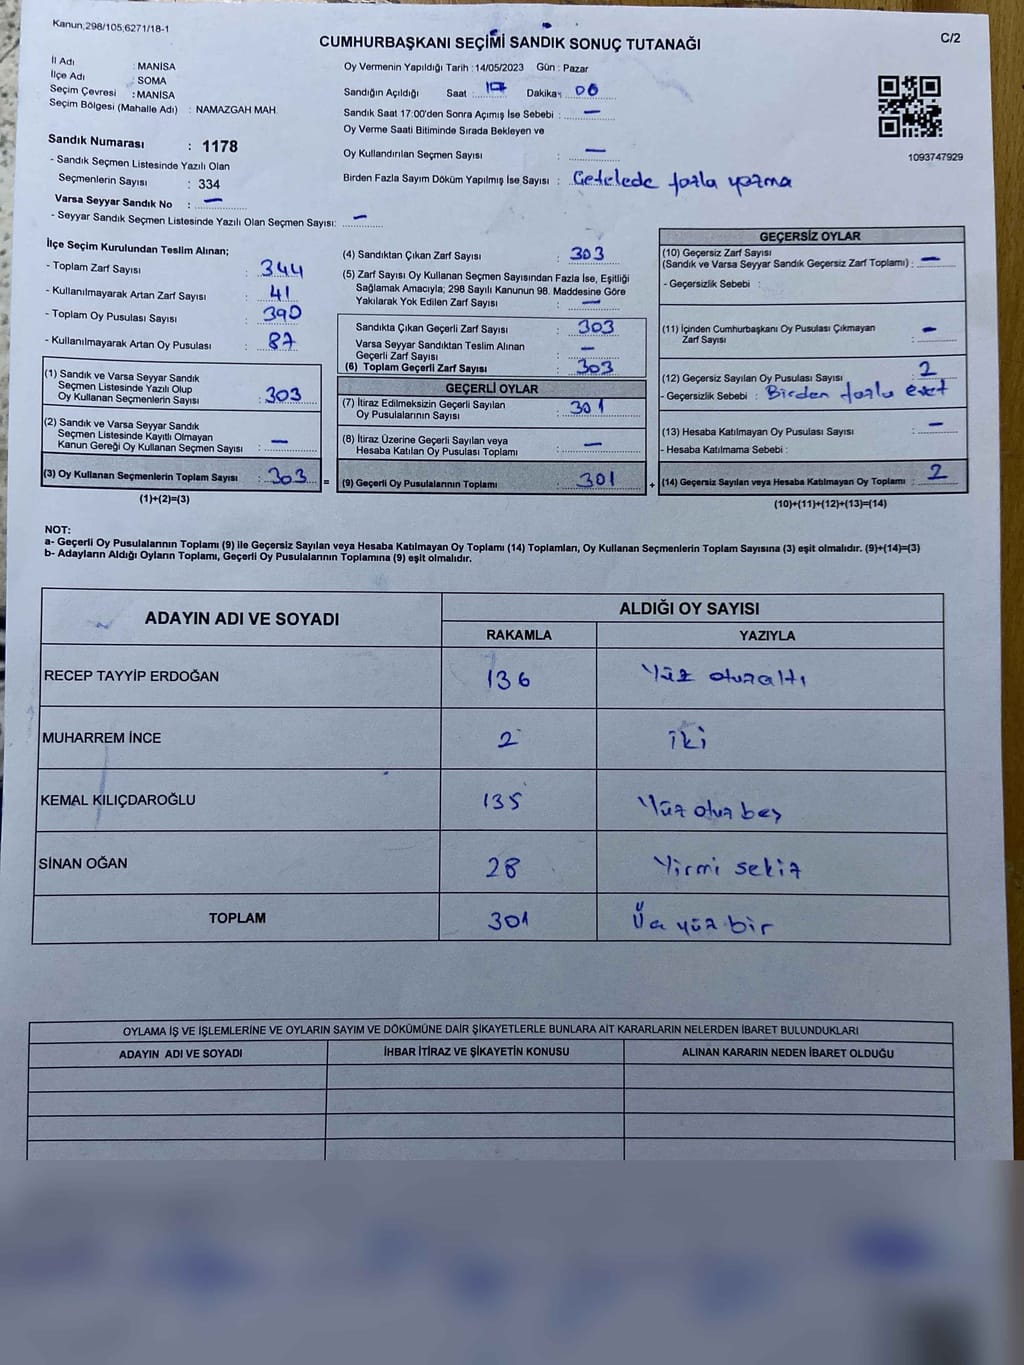 Kanun;298/105,6271/18-1
C/2
CUMHURBAŞKANI SEÇİMİ SANDIK SONUÇ TUTANAĞI
İl Adı : MANİSA
İlçe Adı : SOMA
Seçim Çevresi : MANİSA
Seçim Bölgesi (Mahalle Adı) : NAMAZGAH MAH.
Oy Vermenin Yapıldığı Tarih : 14/05/2023 Gün : Pazar
Sandığın Açıldığı Saat : 17 Dakika : 00
Sandık Saat 17:00'den Sonra Açımış İse Sebebi : —
Oy Verme Saati Bitiminde Sırada Bekleyen ve
Oy Kullandırılan Seçmen Sayısı : —
Birden Fazla Sayım Döküm Yapılmış İse Sayısı : Çetelede fazla yazma
1093747929
Sandık Numarası : 1178
- Sandık Seçmen Listesinde Yazılı Olan
Seçmenlerin Sayısı : 334
Varsa Seyyar Sandık No : —
- Seyyar Sandık Seçmen Listesinde Yazılı Olan Seçmen Sayısı: —
İlçe Seçim Kurulundan Teslim Alınan;
- Toplam Zarf Sayısı : 344
- Kullanılmayarak Artan Zarf Sayısı : 41
- Toplam Oy Pusulası Sayısı : 390
- Kullanılmayarak Artan Oy Pusulası : 87
(1) Sandık ve Varsa Seyyar Sandık
Seçmen Listesinde Yazılı Olup
Oy Kullanan Seçmenlerin Sayısı : 303
(2) Sandık ve Varsa Seyyar Sandık
Seçmen Listesinde Kayıtlı Olmayan
Kanun Gereği Oy Kullanan Seçmen Sayısı : —
(3) Oy Kullanan Seçmenlerin Toplam Sayısı : 303 =
(1)+(2)=(3)
(4) Sandıktan Çıkan Zarf Sayısı : 303
(5) Zarf Sayısı Oy Kullanan Seçmen Sayısından Fazla İse, Eşitliği
Sağlamak Amacıyla; 298 Sayılı Kanunun 98. Maddesine Göre
Yakılarak Yok Edilen Zarf Sayısı : —
Sandıkta Çıkan Geçerli Zarf Sayısı : 303
Varsa Seyyar Sandıktan Teslim Alınan
Geçerli Zarf Sayısı : —
(6) Toplam Geçerli Zarf Sayısı : 303
GEÇERLİ OYLAR
(7) İtiraz Edilmeksizin Geçerli Sayılan
Oy Pusulalarının Sayısı : 301
(8) İtiraz Üzerine Geçerli Sayılan veya
Hesaba Katılan Oy Pusulası Toplamı : —
(9) Geçerli Oy Pusulalarının Toplamı : 301 +
GEÇERSİZ OYLAR
(10) Geçersiz Zarf Sayısı
(Sandık ve Varsa Seyyar Sandık Geçersiz Zarf Toplamı) : —
- Geçersizlik Sebebi :
(11) İçinden Cumhurbaşkanı Oy Pusulası Çıkmayan
Zarf Sayısı : —
(12) Geçersiz Sayılan Oy Pusulası Sayısı : 2
- Geçersizlik Sebebi : Birden fazla evet
(13) Hesaba Katılmayan Oy Pusulası Sayısı : —
- Hesaba Katılmama Sebebi :
(14) Geçersiz Sayılan veya Hesaba Katılmayan Oy Toplamı : 2
(10)+(11)+(12)+(13)=(14)
NOT:
a- Geçerli Oy Pusulalarının Toplamı (9) ile Geçersiz Sayılan veya Hesaba Katılmayan Oy Toplamı (14) Toplamları, Oy Kullanan Seçmenlerin Toplam Sayısına (3) eşit olmalıdır. (9)+(14)=(3)
b- Adayların Aldığı Oyların Toplamı, Geçerli Oy Pusulalarının Toplamına (9) eşit olmalıdır.
ADAYIN ADI VE SOYADI ALDIĞI OY SAYISI
RAKAMLA YAZIYLA
RECEP TAYYİP ERDOĞAN 136 Yüz otuzaltı
MUHARREM İNCE 2 iki
KEMAL KILIÇDAROĞLU 135 Yüz otuz beş
SİNAN OĞAN 28 Yirmi sekiz
TOPLAM 301 Üç yüz bir
OYLAMA İŞ VE İŞLEMLERİNE VE OYLARIN SAYIM VE DÖKÜMÜNE DAİR ŞİKAYETLERLE BUNLARA AİT KARARLARIN NELERDEN İBARET BULUNDUKLARI
ADAYIN ADI VE SOYADI İHBAR İTİRAZ VE ŞİKAYETİN KONUSU ALINAN KARARIN NEDEN İBARET OLDUĞU